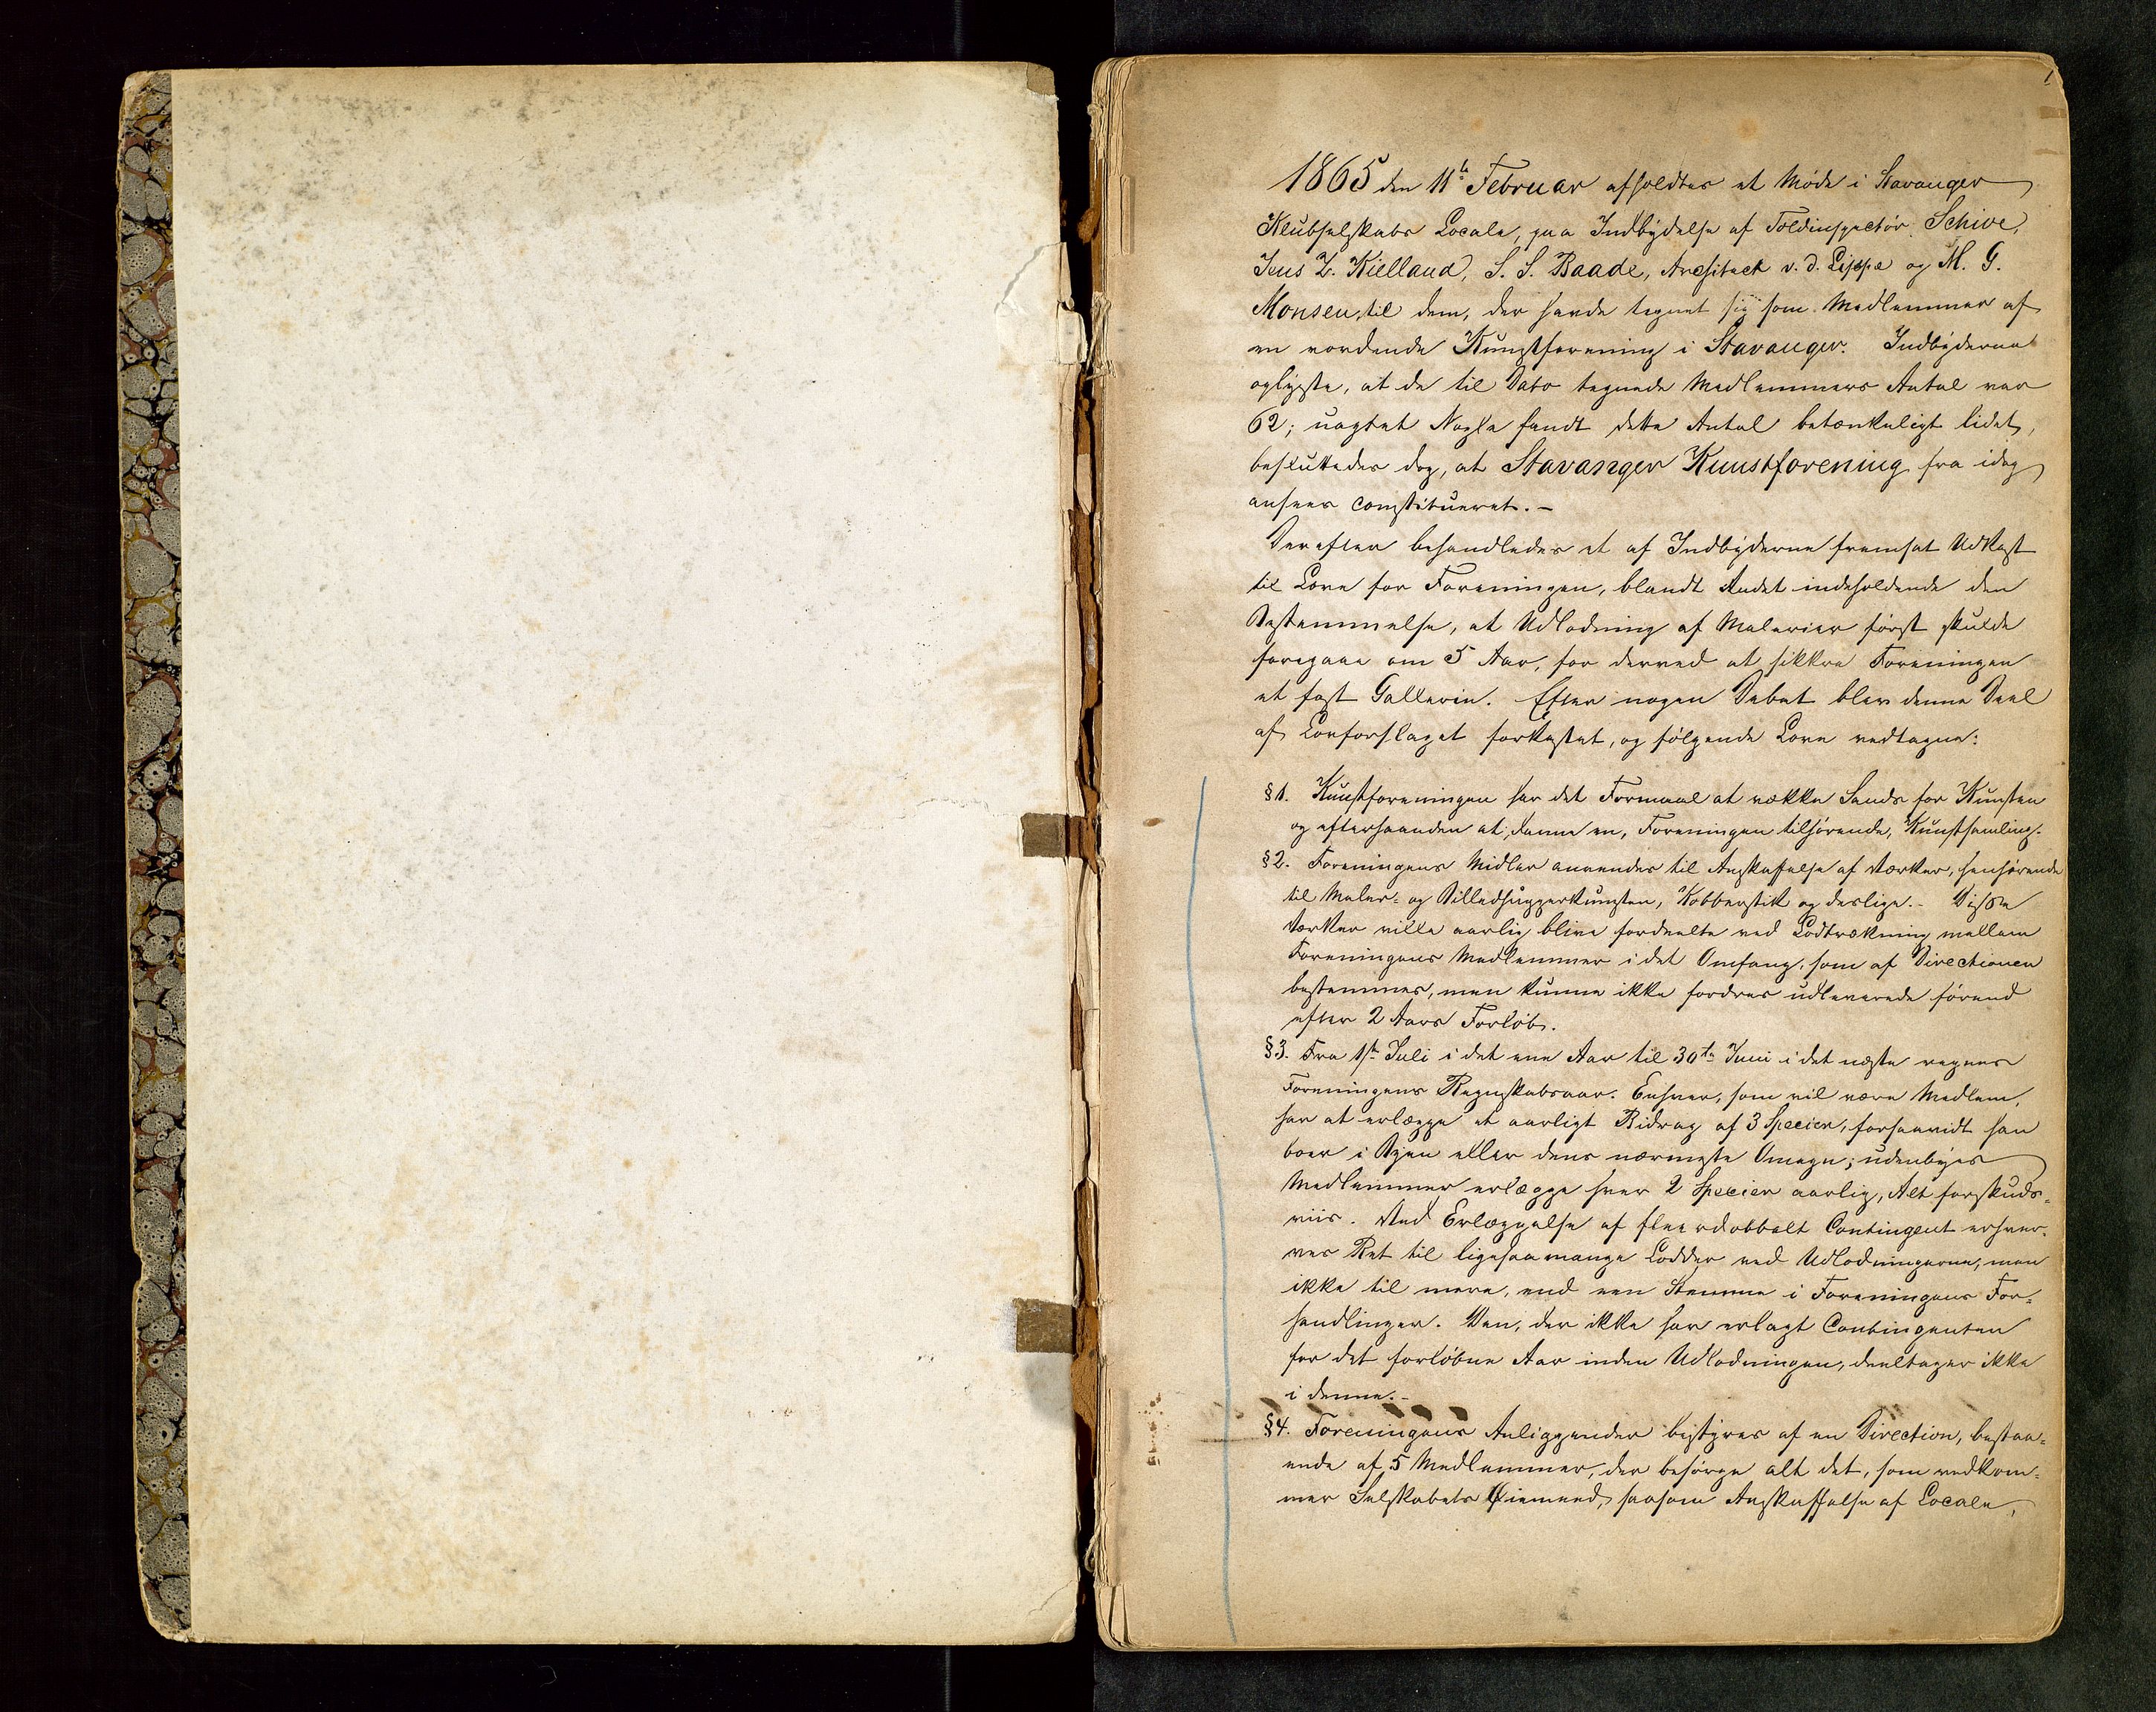 1
1865 den 11te Februar afholdtes et Møde i Stavanger
Klubselskabs Locale, paa Indbydelse af Toldinspectør Schive,
Jens Z. Kielland, S. S. Baade, Architect v. d. Lippe og M. G.
Monsen, til dem, der havde tegnet sig som Medlemmer af
en vordende Kunstforening i Stavanger. Indbyderne
oplyste, at de til Dato tegnede Medlemmers Antal var
62; uagtet Nogle fandt dette Antal betænkeligt lidet,
besluttedes dog, at Stavanger Kunstforening fra idag
ansees constitueret. –
Derefter behandledes et af Indbyderne fremsat Udkast
til Love for Foreningen, blandt Andet indeholdende den
Bestemmelse, at Udlodning af Malerier først skulde
foregaae om 5 Aar, for derved at sikkre Foreningen
et fast Gallerie. Efter nogen Debat blev denne Deel
af Lovforslaget forkastet, og følgende Love vedtagne:
§ 1. Kunstforeningen har det Formaal at vække Sands for Kunsten
og efterhaanden at danne en, Foreningen tilhørende, Kunstsamling.
§ 2. Foreningens Midler anvendes til Anskaffelse af Værker, henhørende
til Maler- og Billedhuggerkunsten, Kobberstik og deslige. – Disse
Værker ville aarlig blive fordeelte ved Lodtrækning mellem
Foreningens Medlemmer i det Omfang, som af Directionen
bestemmes, men kunne ikke fordres udleverede førend
efter 2 Aars Forløb.
§ 3. Fra 1ste Juli i det ene Aar til 30te Juni i det næste regnes
Foreningens Regnskabsaar. Enhver, som vil være Medlem,
har at erlægge et aarligt Bidrag af 3 Species, forsaavidt han
boer i Byen eller dens nærmeste Omegn; udenbyes
Medlemmer erlægge hver 2 Species aarlig, Alt forskuds-
viis. Ved Erlæggelse af fleerdobbelt Contingent erhver-
ves Ret til ligesaamange Lodder ved Udlodningerne, men
ikke til mere, end een Stemme i Foreningens For-
handlinger. Den, der ikke har erlagt Contingenten
for det forløbne Aar inden Udlodningen, deeltager ikke
i denne. –
§ 4. Foreningens Anliggender bestyres af en Direction, bestaa-
ende af 5 Medlemmer, der besørge alt det, som vedkom-
mer Selskabets Øiemeed, saasom Anskaffelse af Locale,